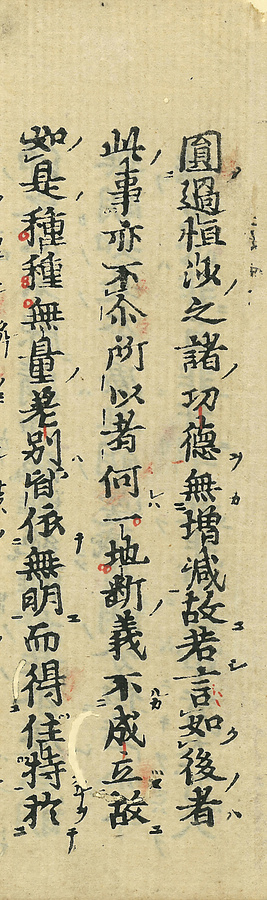 圓過恒沙之諸功德無增減故若言如後者
此事亦不尒所以者何一地斷義不成立故
如是種種無量差別皆依無明而得住持於